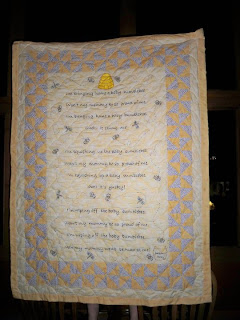 I'm bringing home a baby bumblebee
Won't my mommy be so proud of me
I'm bringing home a baby bumblebee
Ouch! It stung me!
I'm squishing up the baby bumblebee
Won't my mommy be so proud of me
I'm squishing up a baby bumblebee
it's
I'm wiping off the baby bumblebee
Won't my mommy be so proud of me
I'm wiping off the baby bumblebee
mommy